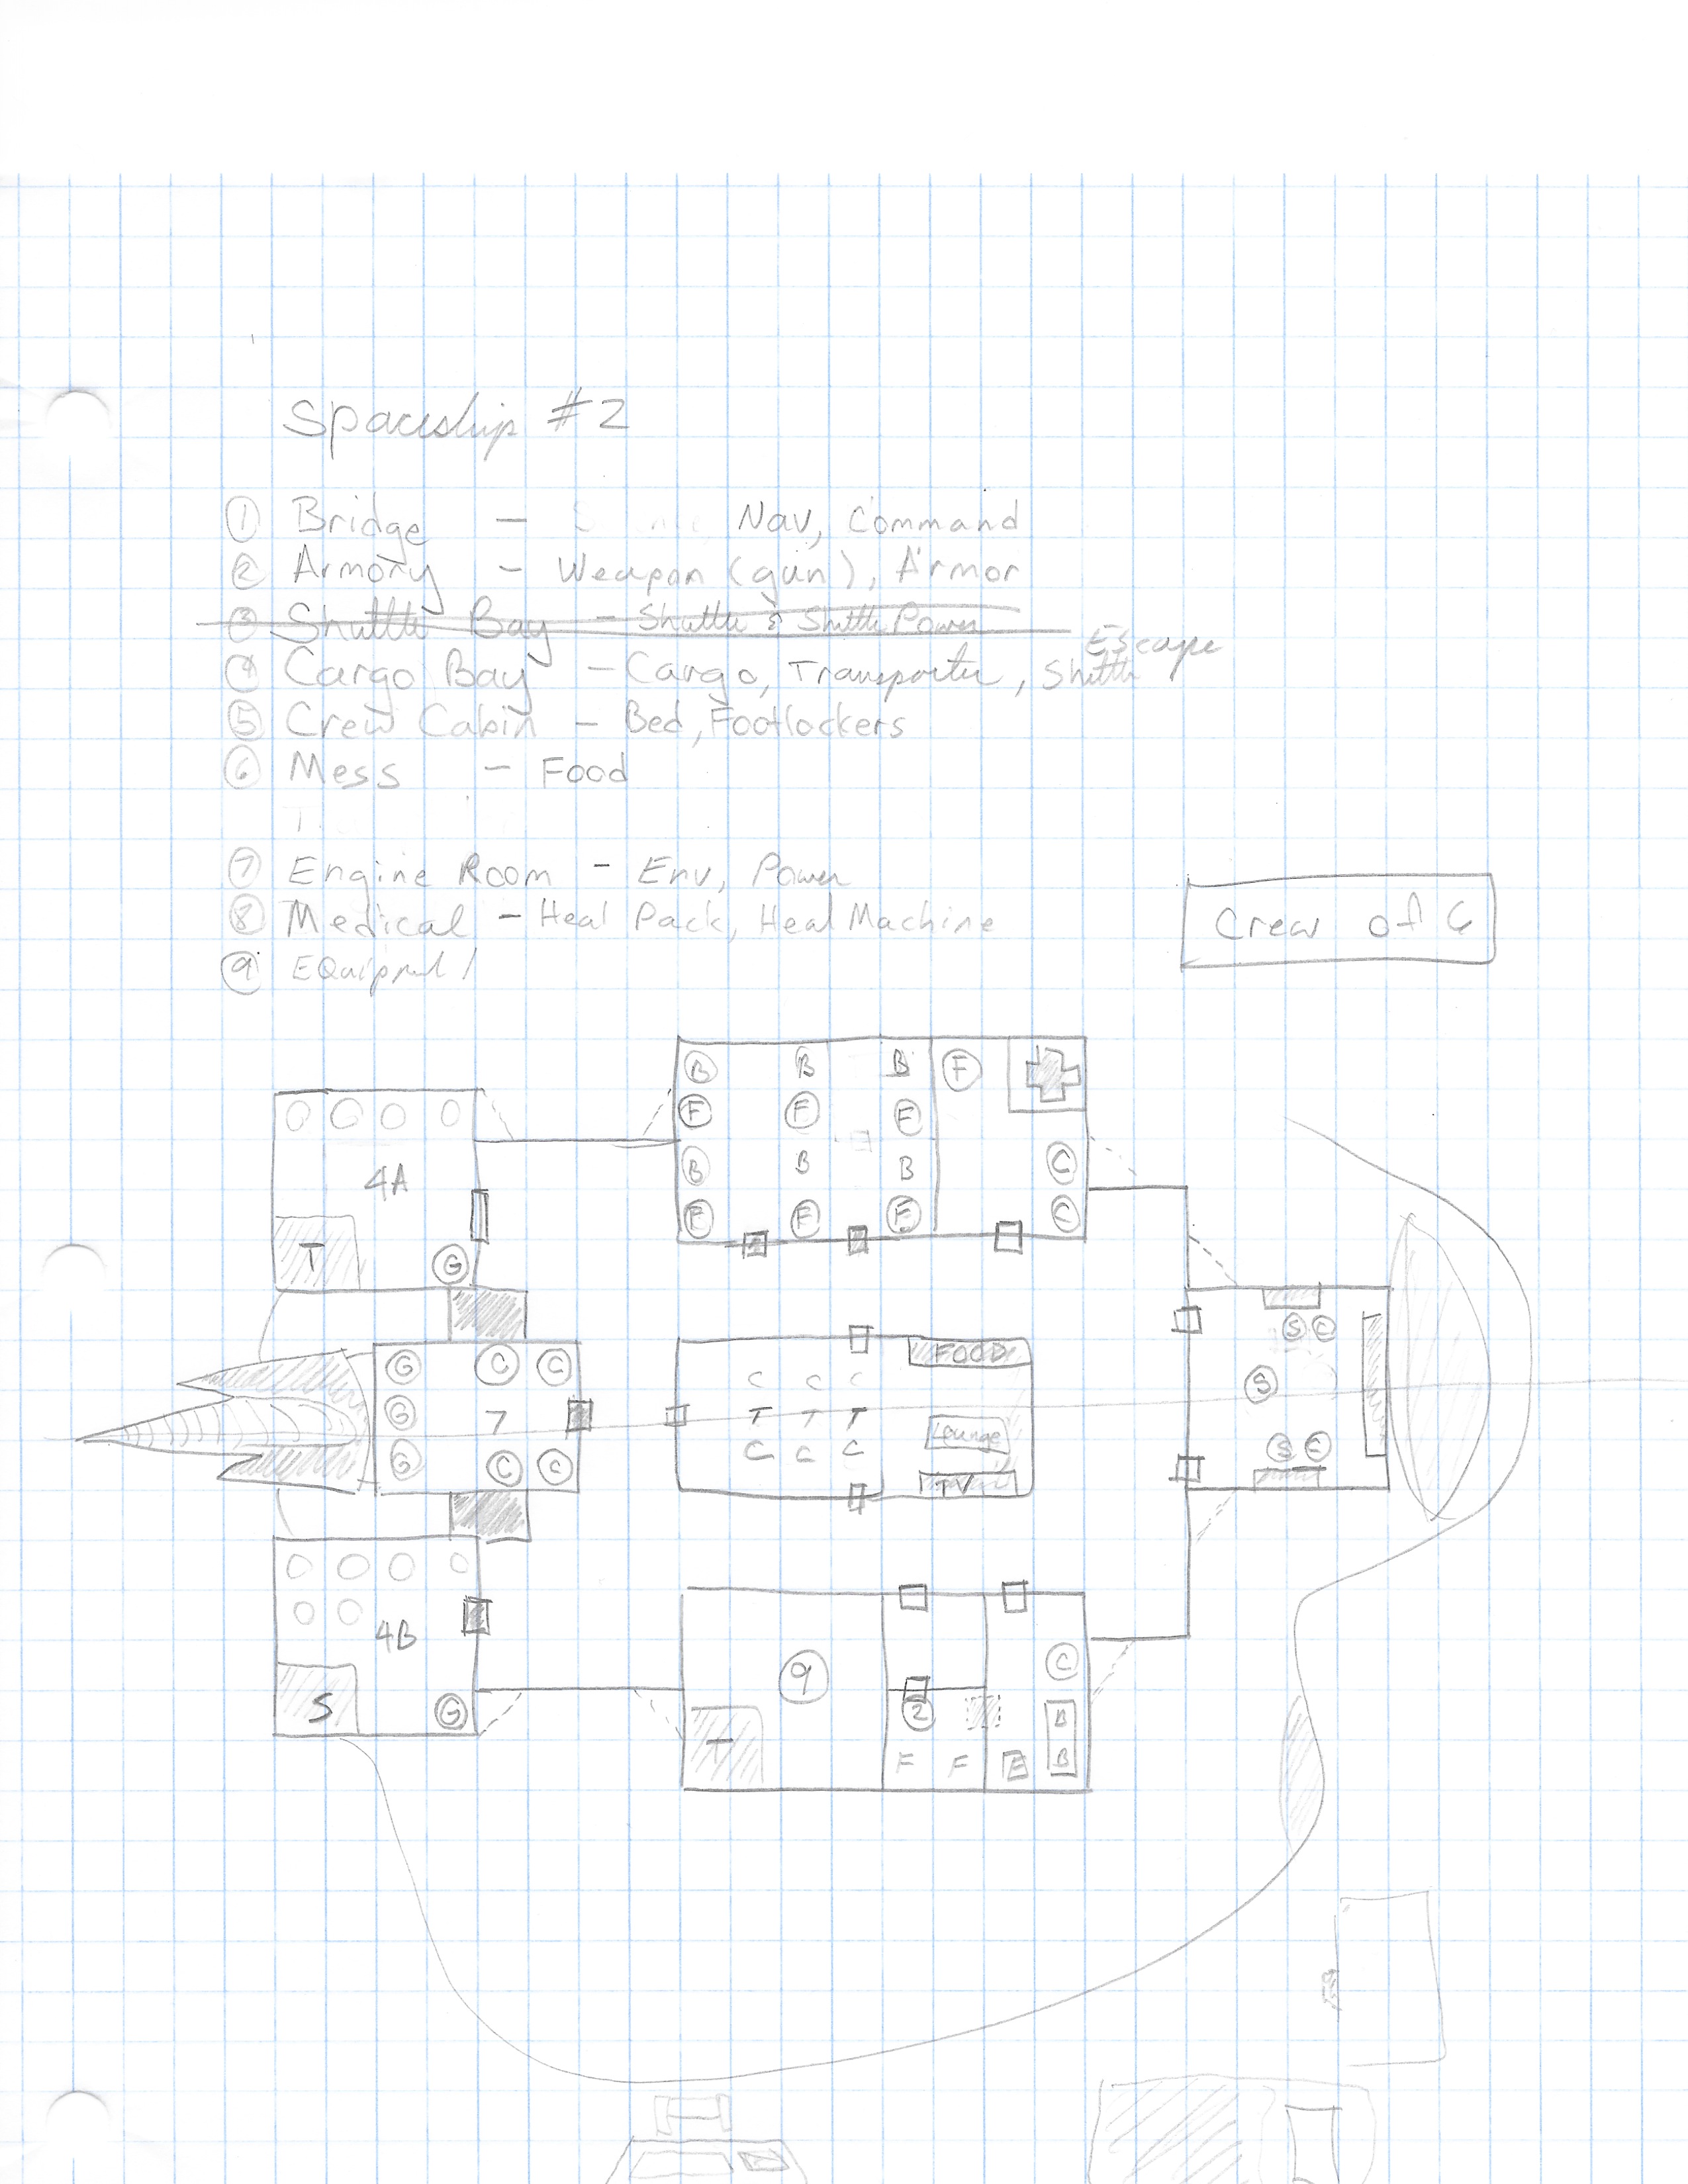 Spaceship #2
① Bridge — Nav, Command
② Armory – Weapon (gun), Armor
③ Shuttle Bay – Shuttle & Shuttle Power
Escape
④ Cargo Bay – Cargo, Transporter, Shuttle
⑤ Crew Cabin – Bed, Footlockers
⑥ Mess – Food
⑦ Engine Room – Env, Power
⑧ Medical – Heal Pack, Heal Machine
Crew of 6
⑨
B B B F
F F F
4A
B B B C
F F F C
T G
G C C
FOOD
C C C
S C
S
G 7
T T T
Lounge
C C C
G C C
TV
S C
4B
9
C
S G
T
2
B
F F E B